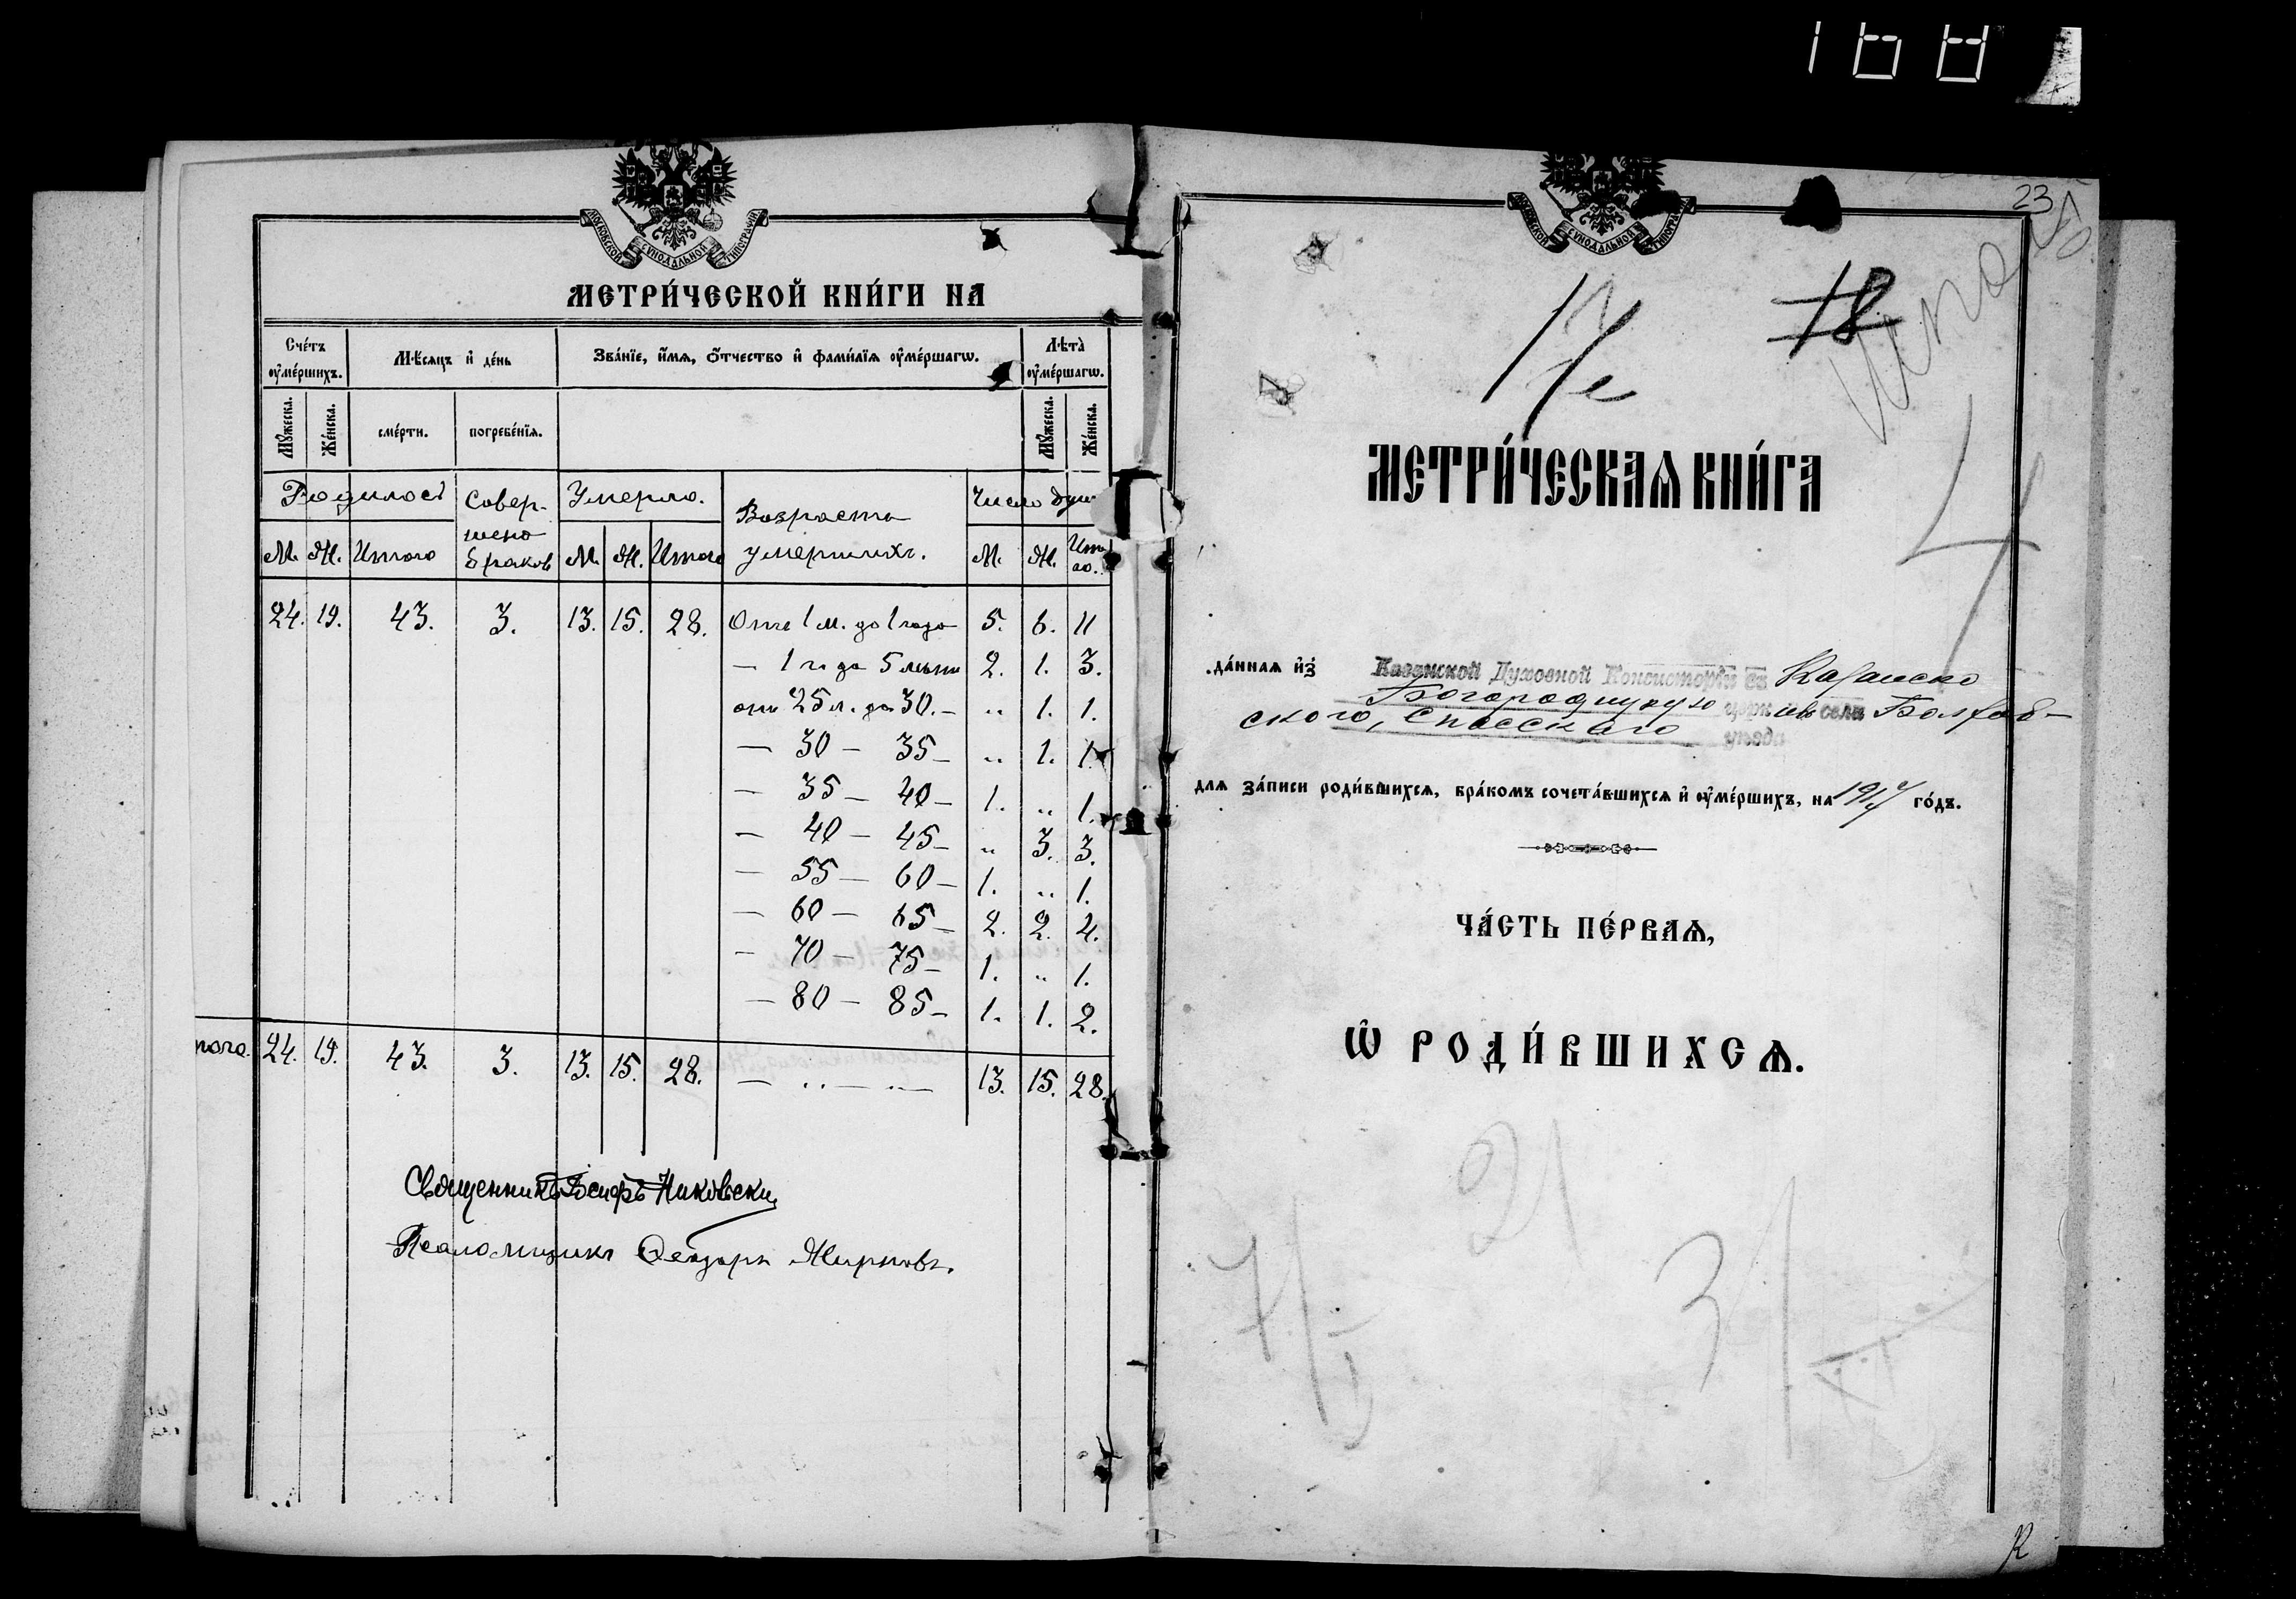 168
МОСКОВСКОЙ СѴНОДАЛЬНОЙ ТИПОГРАФІИ
МЕТРИ́ЧЕСКОЙ КНИ́ГИ НА
Сче́тъ ᲂу҆ме́ршихъ.
Мѣсяцъ и҆ де́нь
Зва́нїе, и҆́мя, ѻ҆́тчество и҆ фами́лїя ᲂу҆ме́ршагѡ.
Лѣта̀ ᲂу҆ме́ршагѡ.
Мꙋ́жеска. Же́нска. сме́рти. погребе́нїя. Мꙋ́жеска. Же́нска.
Родилось Совер-шено браков Умерло. Возрасты умершихъ. Число душ
М. Ж. Итого М. Ж. Итого М. Ж. Итого.
24. 19. 43. 3. 13. 15. 28. Отъ 1 м. до 1 года 5. 6. 11
— 1 г. до 5 лѣтъ 2. 1. 3.
отъ 25 л. до 30. — „ 1. 1.
— 30 — 35 — „ 1. 1.
— 35 — 40 — 1. „ 1.
— 40 — 45 — „ 3. 3.
— 55 — 60 — 1. „ 1.
— 60 — 65 — 2. 2. 4.
— 70 — 75 — 1. „ 1.
— 80 — 85 — 1. 1. 2.
того. 24. 19. 43. 3. 13. 15. 28. — „ — „ — 13. 15. 28.
Священникъ
Псаломщикъ Ѳеодоръ
МОСКОВСКОЙ СѴНОДАЛЬНОЙ ТИПОГРАФІИ
23
18
МЕТРИ́ЧЕСКАѦ КНИ́ГА
4
да́нная и҆з̾ Казанской Духовной Консисторіи въ Казанско
Богородицкую церковь села Болхов-
ского, Спасскаго уѣзда
для за́писи роди́вшихся, бра́комъ сочета́вшихся и҆ ᲂу҆ме́ршихъ, на 1917 го́дъ.
ЧА́СТЬ ПЕ́РВАѦ,
Ѡ҆ РОДИ́ВШИХСѦ.
21